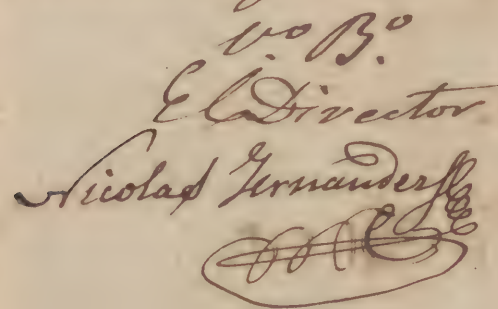 V.o B.o
El Director
Nicolas Fernandez